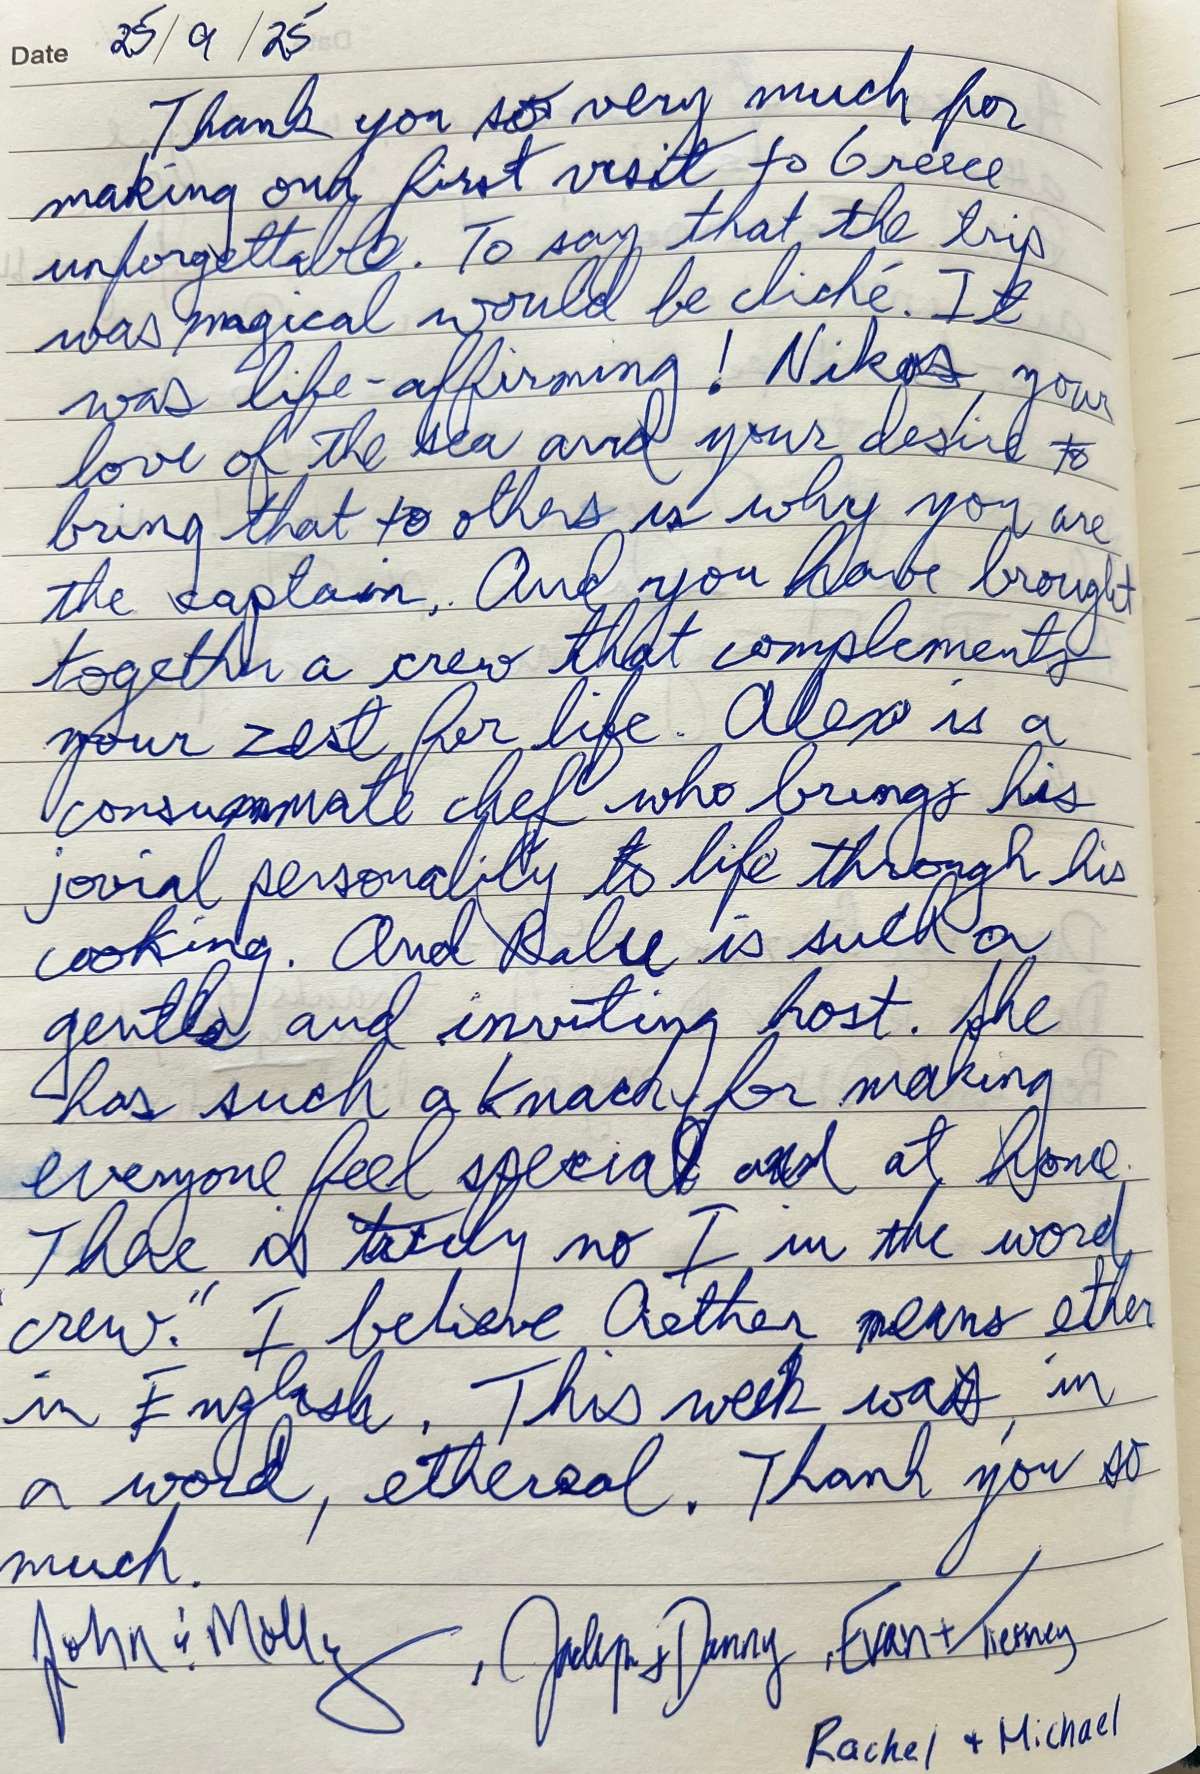 Date 25/9/25
Thank you so very much for
making our first visit to Greece
unforgettable. To say that the trip
was magical would be cliché. It
was life-affirming! Nikos, your
love of the sea and your desire to
bring that to others is why you are
the captain. And you have brought
together a crew that complements
your zest for life. Alex is a
consummate chef who brings his
jovial personality to life through his
cooking. And is such a
gentle and inviting host. She
has such a knack for making
everyone feel special and at home.
There is truly no I in the word
"crew." I believe Aether means ether
in English. This week was, in
a word, ethereal. Thank you so
much.
John & Molly, Jaclyn & Danny, Evan + Tierney
Rachel + Michael